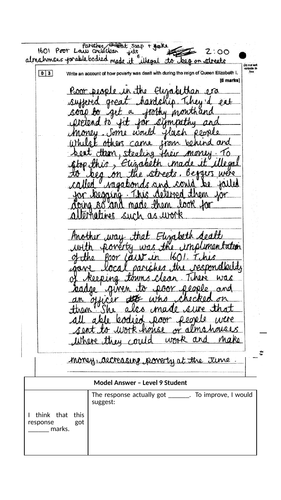 Parishes soap + fake
1601 Poor Laws Christian fits 2:00
almshouses for able bodied made it illegal to beg on streets
0 3 Write an account of how poverty was dealt with during the reign of Queen Elizabeth I.
[8 marks]
Poor people in the Elizabethan era
suffered great hardship. They'd eat
soap to get a frothy mouth and
pretend to fit for sympathy and
money. Some would flash people
whilst others came from behind and
beat them, stealing their money. To
stop this, Elizabeth made it illegal
to beg on the streets. Beggers were
called vagabonds and could be jailed
for begging. This deterred them for
doing so and made them look for
alternatives such as work.
Another way that Elizabeth dealt
with poverty was the implementation
of the Poor law in 1601. This
gave local parishes the responsibility
of keeping towns clean. There was
badge given to poor people, and
an officer who checked on
them. She also made sure that
all able bodied poor people were
sent to work-house or almshouses
where they could work and make
money, decreasing poverty at the time.
Model Answer – Level 9 Student
I think that this
response got
______ marks.
The response actually got ______. To improve, I would
suggest: